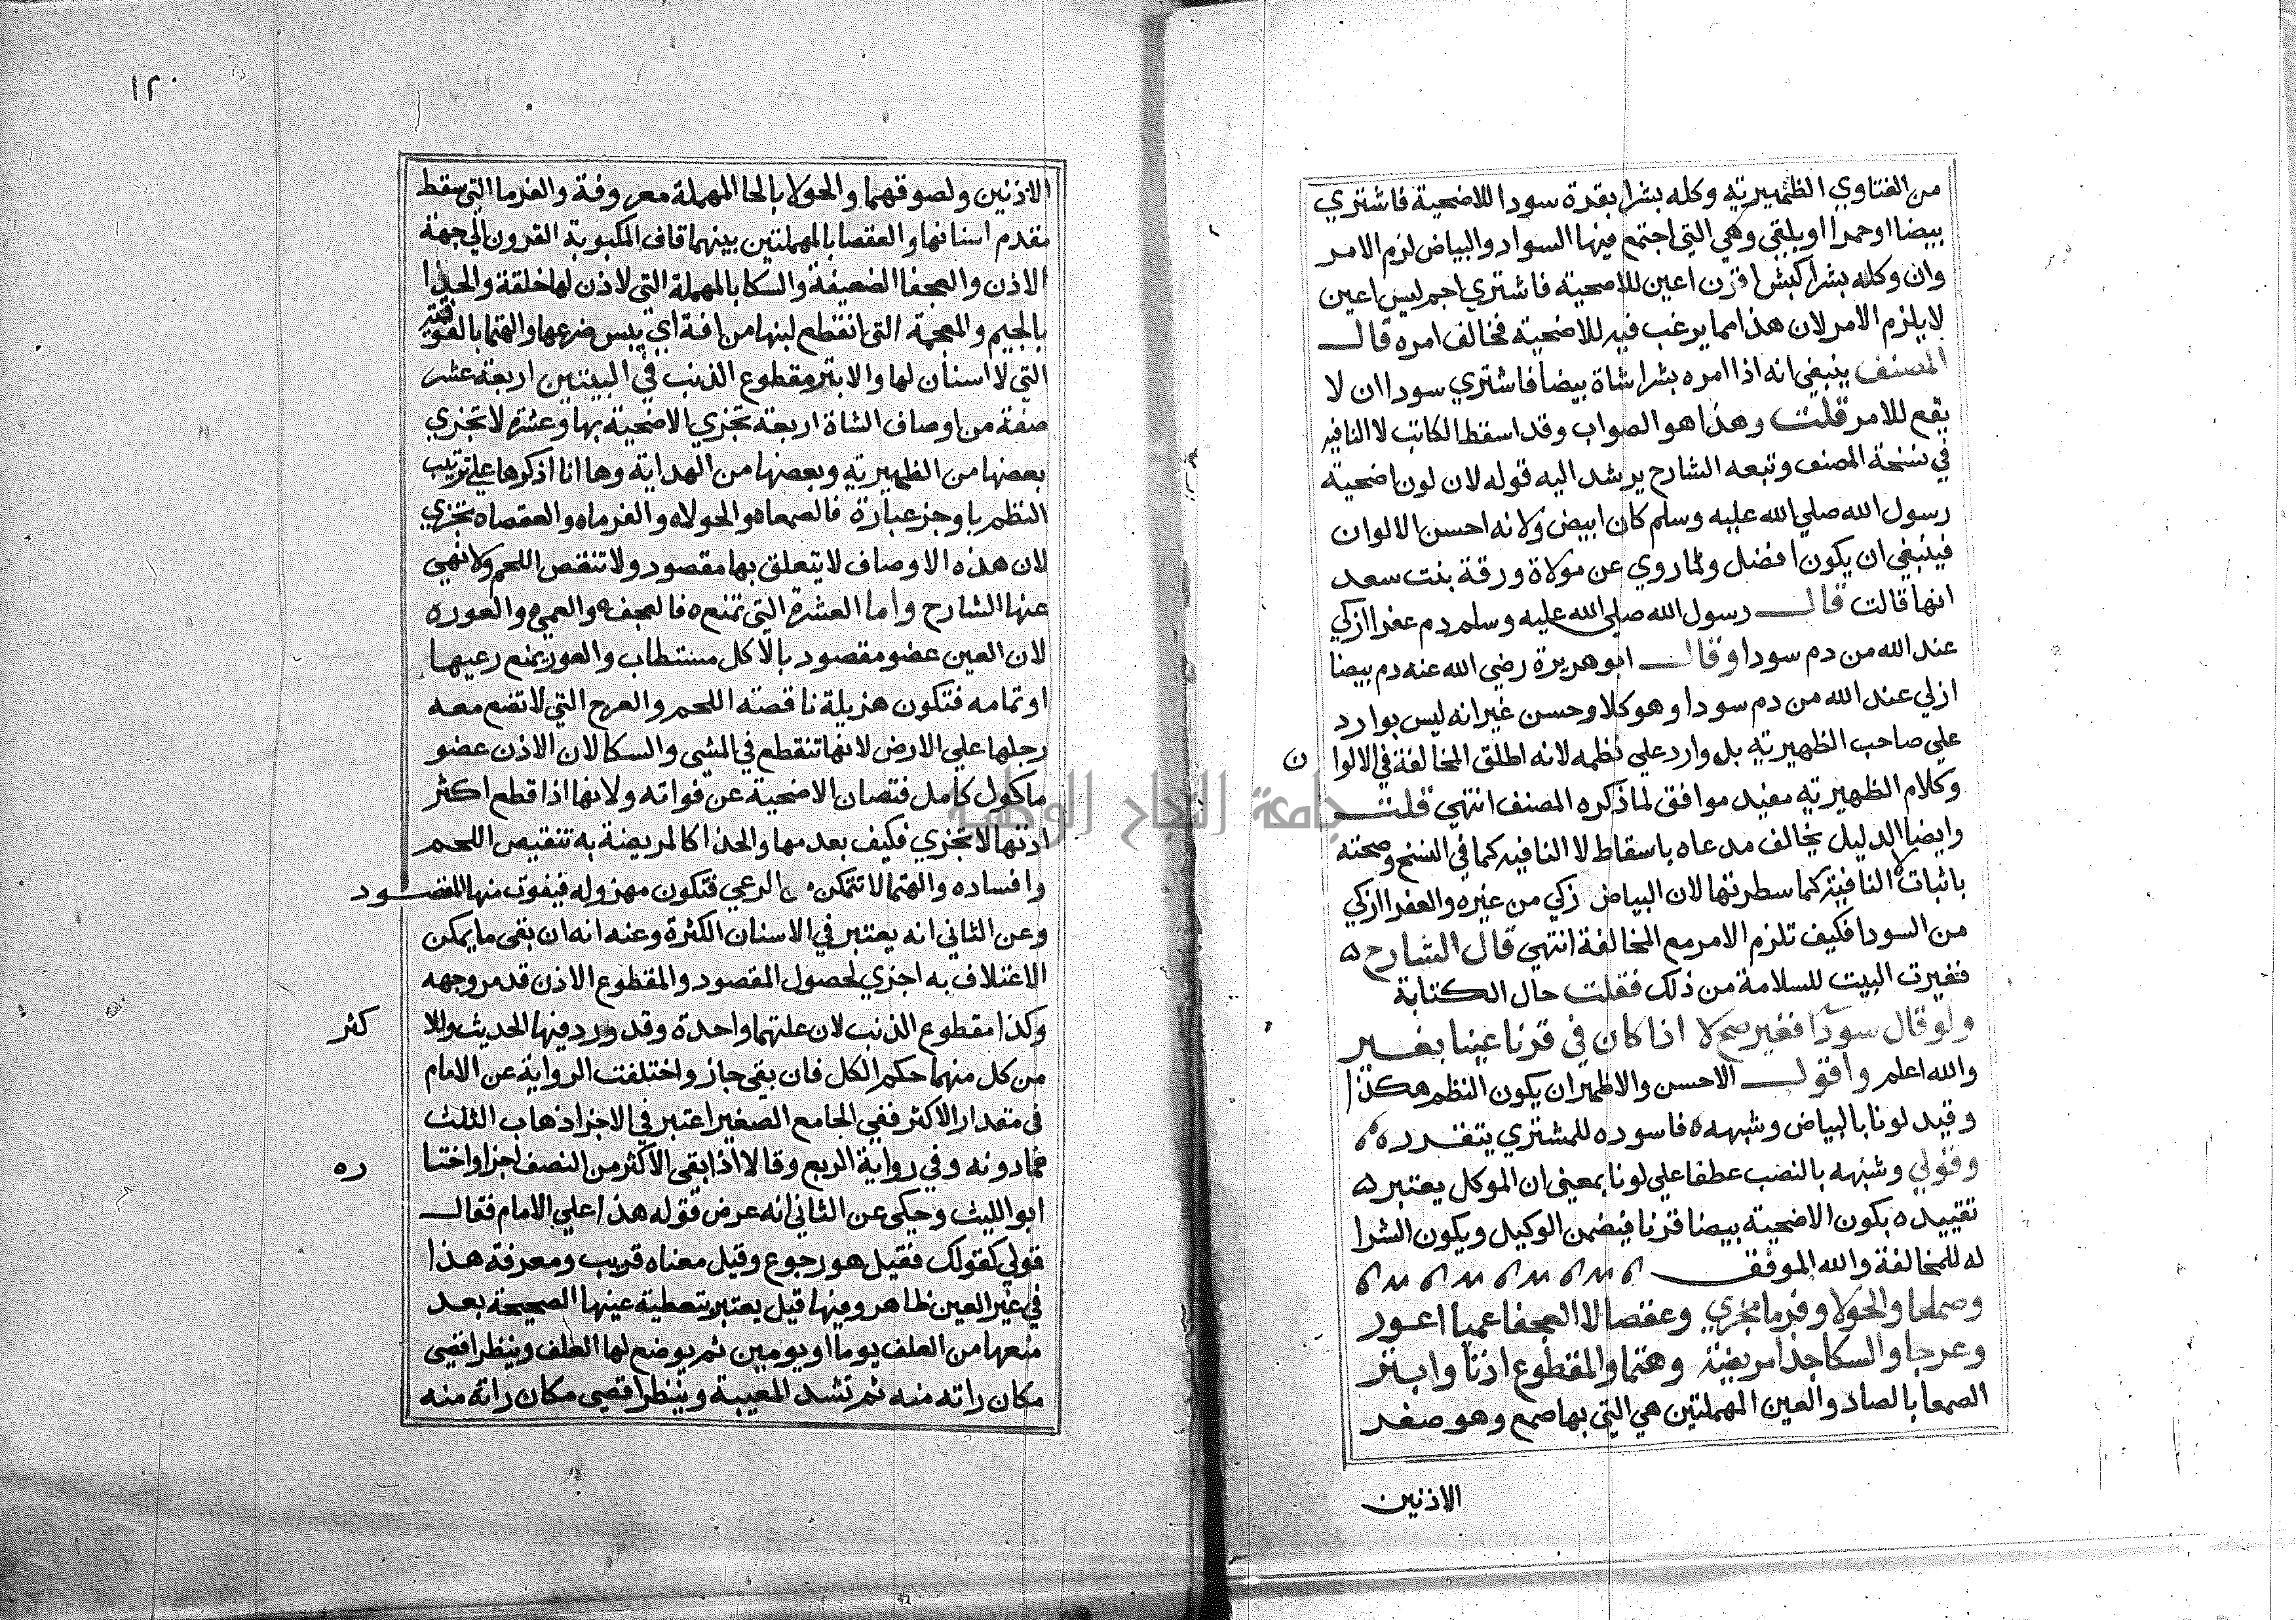 من الفتاوي الظهيرية وكله بشرا بقرة سودا للاضحية فاشتري
بيضا او حمرا او بلقي وهي التي اجتمع فيها السواد والبياض لزم الامر
وان وكله بشرا كبش اقرن اعين للاضحية فاشتري اجم ليس اعين
لا يلزم الامر لان هذا مما يرغب فيه للاضحية فخالف امره قال
المصنف ينبغي انه اذا امره بشرا شاة بيضا فاشتري سودا ان لا
يقع للامر قلت وهذا هو الصواب وقد اسقط الكاتب لا النافيه
في نسخة المصنف وتبعه الشارح يرشد اليه قوله لان لون اضحية
رسول الله صلي الله عليه وسلم كان ابيض ولانه احسن الالوان
فينبغي ان يكون افضل ولما روي عن مولاة ورقة بنت سعد
انها قالت قال رسول الله صلي الله عليه وسلم دم عفرا ازكي
عند الله من دم سودا وقال ابو هريرة رضي الله عنه دم بيضا
ازكي عند الله من دم سودا وهو كلام حسن غير انه ليس بوارد
علي صاحب الظهيرية بل وارد علي نظمه لانه اطلق المخالفة في الالوا ن
وكلام الظهيرية مفيد موافق لما ذكره المصنف انتهي قلت
وايضا الدليل يخالف مدعاه باسقاط لا النافيه كما في النسخ وصحته
باثبات لا النافية كما سطرتها لان البياض زكي من غيره والعفرا ازكي
من السودا فكيف تلزم الامر مع المخالفة انتهي قال الشارح ه
فغيرت البيت للسلامة من ذلك فقلت حال الكتابة
ولو قال سودا فغير صح لا اذا كان في قرنا عينا بغير
والله اعلم واقول الاحسن والاظهر ان يكون النظم هكذا
وقيد لونا بالبياض وشبهه ه فاسوده للمشتري يتقرره
وقولي وشبهه بالنصب عطفا علي لونا بمعني ان الموكل يعتبر ه
تقييده بكون الاضحية بيضا قرنا فيضمن الوكيل ويكون الشرا
له للمخالفة والله الموفق
وصمعا والحولا وفرما تجزي وعقصا لا العجفا عميا اعور
وعرجا والسكا جذا مريضة وهتما والمقطوع اذنا وابتر
الصمعا بالصاد والعين المهملتين هي التي بها صمع وهو صغر
الاذنين
١٢٠
الاذنين ولصوقهما والحولا بالحا المهملة معروفة والفرما التي سقط
مقدم اسنانها والعقصا بالمهملتين بينهما قاف المكبوبة القرون الي جهة
الاذن والعجفا الضعيفة والسكا بالمهملة التي لا اذن لها خلقة والجذا
بالجيم والمعجمة التي انقطع لبنها من افة اي يبس ضرعها والهتما بالفوقية
التي لا اسنان لها والابتر مقطوع الذنب في البيتين اربعة عشر
صفة من اوصاف الشاة اربعة تجزي الاضحية بها وعشرة لا تجزي
بعضها من الظهيرية وبعضها من الهداية وها انا اذكرها علي ترتيب
النظم باوجز عبارة فالصمعاه والحولاه والفرماه والعقصاه تجزي
لان هذه الاوصاف لا يتعلق بها مقصود ولا تنقص اللحم ولا نهي
عنها الشارح واما العشرة التي تمنع ه فالعجف ه والعمي ه والعوره
لان العين عضو مقصود بالاكل مستطاب والعور يمنع رعيها
او تمامه فتكون هزيلة ناقصة اللحم والعرج التي لا تضع معه
رجلها علي الارض لانها تنقطع في المشي والسكا لان الاذن عضو
ماكول كامل فتصان الاضحية عن فواته ولانها اذا قطع اكثر
اذنها لا تجزي فكيف بعدمها والجذا كالمريضة به تنقيص اللحم
وافساده والهتما لا تتمكن الرعي فتكون مهزوله فيفوت منها المقصود
وعن الثاني انه يعتبر في الاسنان الكثرة وعنه انه ان بقي ما يمكن
الاعتلاف به اجزي لحصول المقصود والمقطوع الاذن قد مر وجهه
وكذا مقطوع الذنب لان علتهما واحدة وقد ورد فيها الحديث وللا كثر
من كل منهما حكم الكل فان بقي جاز واختلفت الرواية عن الامام
في مقدار الاكثر ففي الجامع الصغير اعتبر في الاجزا ذهاب الثلث
فما دونه وفي رواية الربع وقالا اذا بقي الاكثر من النصف اجزا واختا ره
ابو الليث وحكي عن الثاني انه عرض قوله هذا علي الامام فقال
قولي كقولك فقيل هو رجوع وقيل معناه قريب ومعرفة هذا
في غير العين ظاهر وفيها قيل يعتبر بتغطية عينها الصحيحة بعد
منعها من العلف يوما او يومين ثم يوضع لها العلف وينظر اقصي
مكان راته منه ثم تشد المعيبة وينظر اقصي مكان راته منه
جامعة النجاح الوطنية